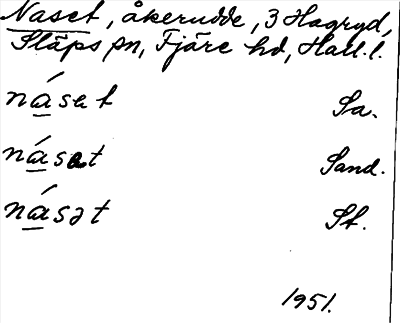 Naset, åkerudde, 3 Hagryd,
Släps sn, Fjäre hd, Hall. l.
ná̱set Sa.
ná̱sat Sand.
ná̱sət St.
1951.